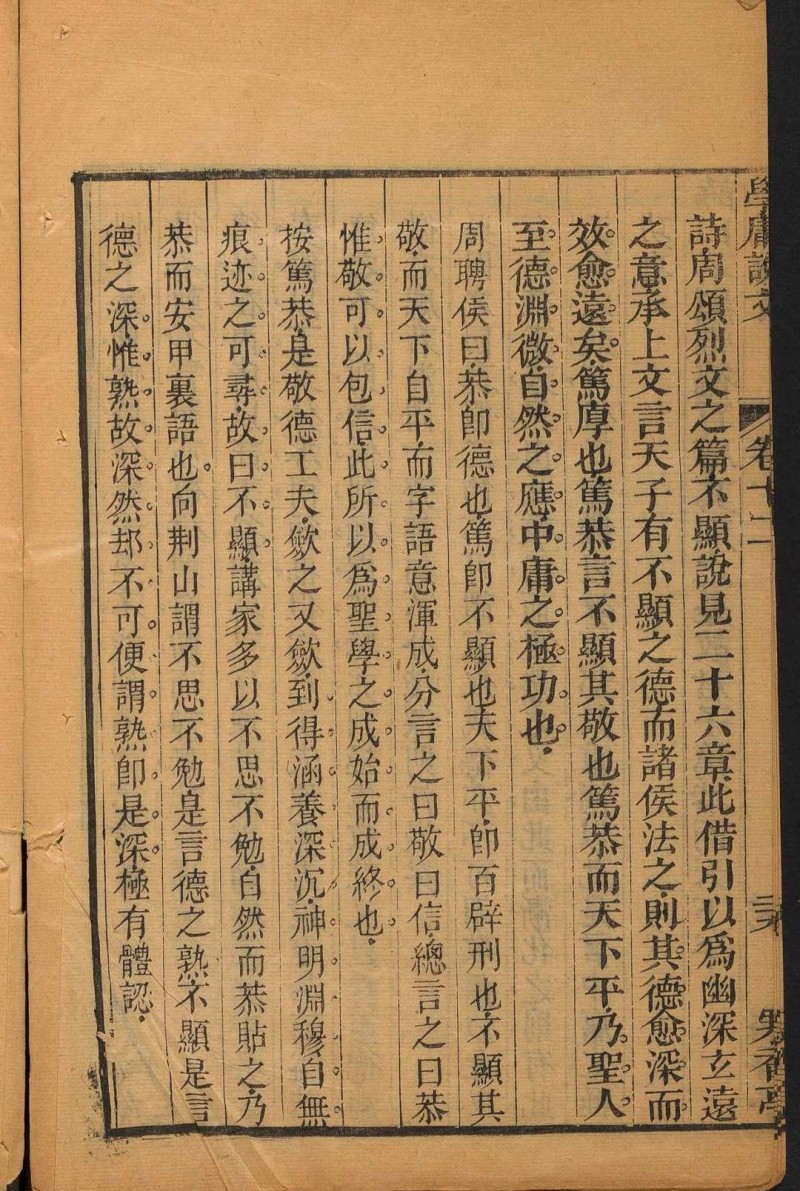 學庸說文 卷十二
詩周頌烈文之篇不顯說見二十六章此借引以爲幽深玄遠
之意承上文言天子有不顯之德而諸侯法之則其德愈深而
效愈遠矣篤厚也篤恭言不顯其敬也篤恭而天下平乃聖人
至德淵微自然之應中庸之極功也
周聘侯曰恭卽德也篤卽不顯也天下平卽百辟刑也不顯其
敬而天下自平而字語意渾成分言之曰敬曰信總言之曰恭
惟敬可以包信此所以爲聖學之成始而成終也
按篤恭是敬德工夫歛之又歛到得涵養深沉神明淵穆自無
痕迹之可尋故曰不顯講家多以不思不勉自然而恭貼之乃
恭而安甲裏語也向荆山謂不思不勉是言德之熟不顯是言
德之深惟熟故深然却不可便謂熟卽是深極有體認